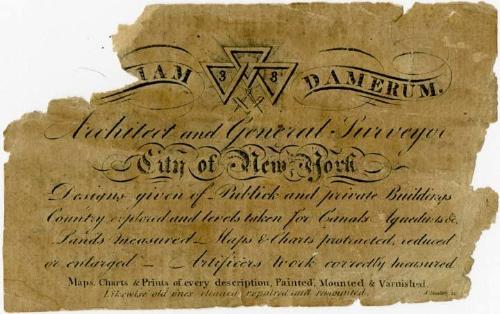 IAM 3 8 DAMERUM.
Architect and General Surveyor
City of New York
Designs given of Publick and private Buildings
Country explored and levels taken for Canals Aqueducts &c
Lands measured – Maps & Charts protracted, reduced
or enlarged – Artificers work correctly measured
Maps, Charts & Prints of every description, Painted, Mounted & Varnished.
Likewise old ones cleaned, repaired and remounted.